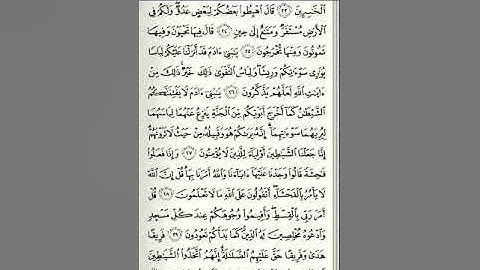 الْخَاسِرِينَ ٢٣ قَالَ اهْبِطُوا بَعْضُكُمْ لِبَعْضٍ عَدُوٌّ وَلَكُمْ فِي
الْأَرْضِ مُسْتَقَرٌّ وَمَتَاعٌ إِلَىٰ حِينٍ ٢٤ قَالَ فِيهَا تَحْيَوْنَ وَفِيهَا
تَمُوتُونَ وَمِنْهَا تُخْرَجُونَ ٢٥ يَٰبَنِي ءَادَمَ قَدْ أَنزَلْنَا عَلَيْكُمْ لِبَاسًا
يُوَٰرِي سَوْءَٰتِكُمْ وَرِيشًا وَلِبَاسُ التَّقْوَىٰ ذَٰلِكَ خَيْرٌ ذَٰلِكَ مِنْ
ءَايَٰتِ اللَّهِ لَعَلَّهُمْ يَذَّكَّرُونَ ٢٦ يَٰبَنِي ءَادَمَ لَا يَفْتِنَنَّكُمُ
الشَّيْطَٰنُ كَمَا أَخْرَجَ أَبَوَيْكُم مِّنَ الْجَنَّةِ يَنزِعُ عَنْهُمَا لِبَاسَهُمَا
لِيُرِيَهُمَا سَوْءَٰتِهِمَا إِنَّهُ يَرَىٰكُمْ هُوَ وَقَبِيلُهُ مِنْ حَيْثُ لَا تَرَوْنَهُمْ
إِنَّا جَعَلْنَا الشَّيَٰطِينَ أَوْلِيَاءَ لِلَّذِينَ لَا يُؤْمِنُونَ ٢٧ وَإِذَا فَعَلُوا
فَٰحِشَةً قَالُوا وَجَدْنَا عَلَيْهَا ءَابَاءَنَا وَاللَّهُ أَمَرَنَا بِهَا قُلْ إِنَّ اللَّهَ
لَا يَأْمُرُ بِالْفَحْشَاءِ أَتَقُولُونَ عَلَى اللَّهِ مَا لَا تَعْلَمُونَ ٢٨ قُلْ
أَمَرَ رَبِّي بِالْقِسْطِ وَأَقِيمُوا وُجُوهَكُمْ عِندَ كُلِّ مَسْجِدٍ
وَادْعُوهُ مُخْلِصِينَ لَهُ الدِّينَ كَمَا بَدَأَكُمْ تَعُودُونَ ٢٩ فَرِيقًا
هَدَىٰ وَفَرِيقًا حَقَّ عَلَيْهِمُ الضَّلَٰلَةُ إِنَّهُمُ اتَّخَذُوا الشَّيَٰطِينَ